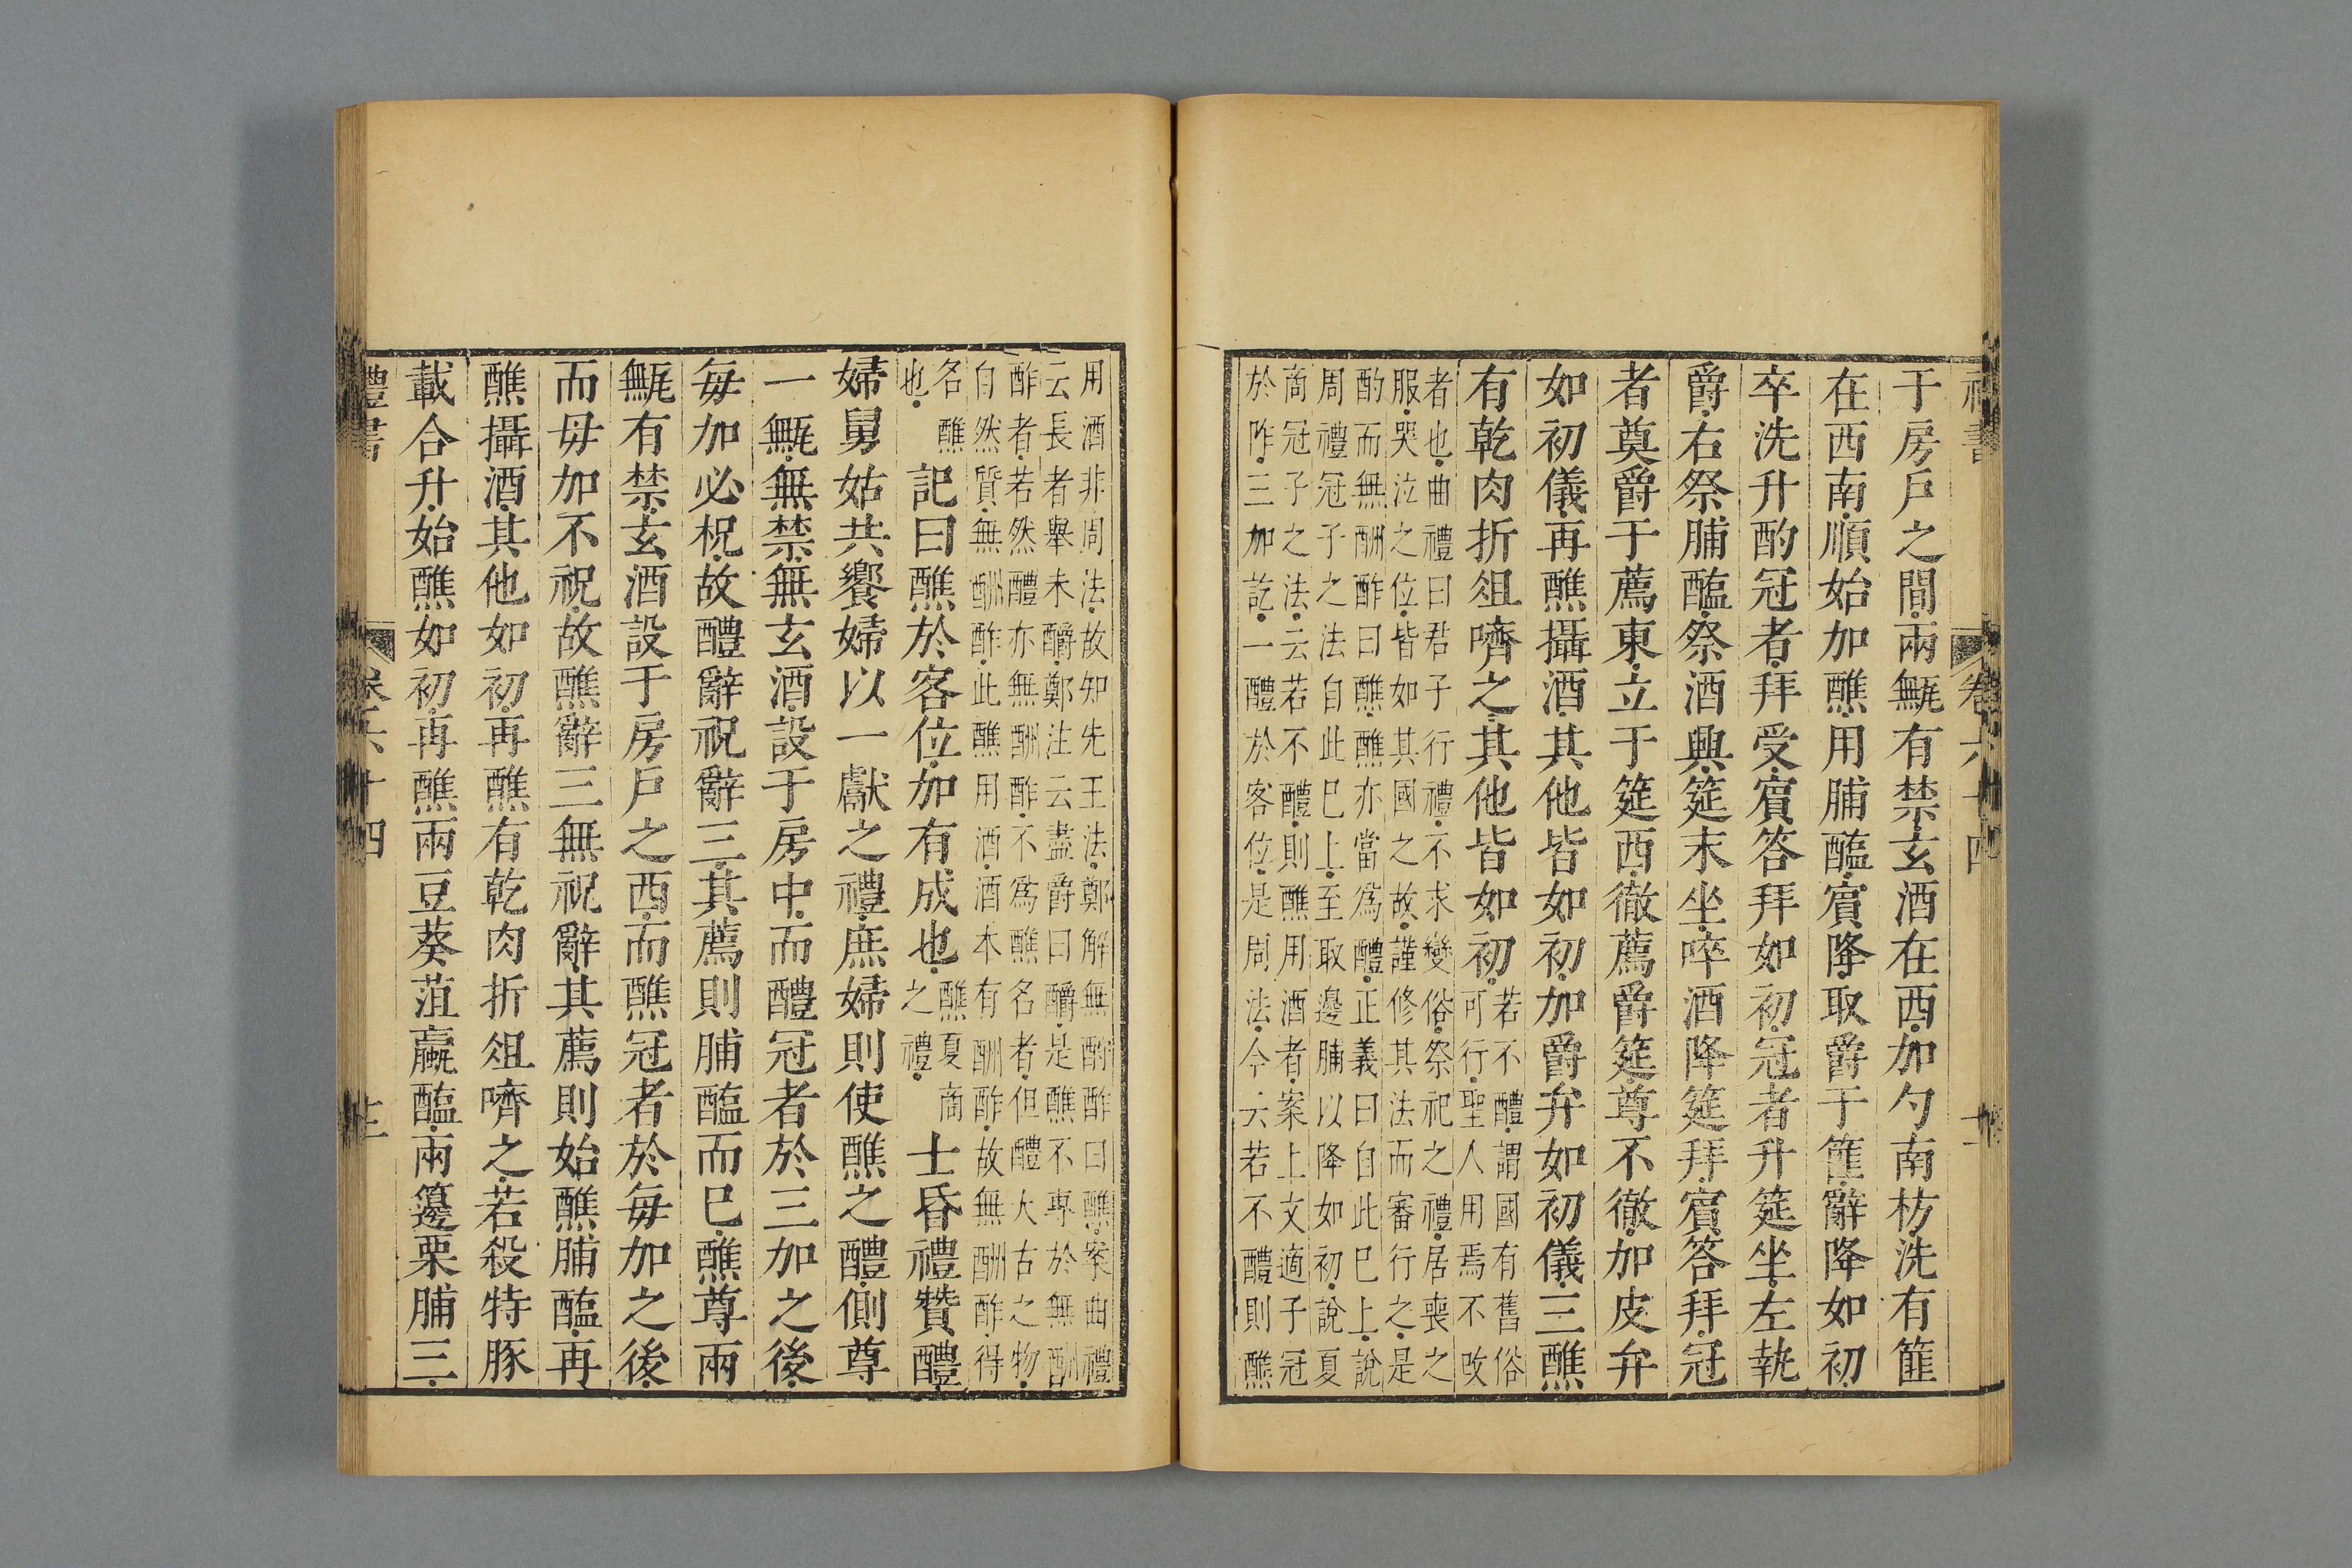 于房戶之間兩甒有禁玄酒在西加勺南枋洗有篚
在西南順始加醮用脯醢賓降取爵于篚辭降如初
卒洗升酌冠者拜受賓答拜如初冠者升筵坐左執
爵右祭脯醢祭酒興筵末坐啐酒降筵拜賓答拜冠
者奠爵于薦東立于筵西徹薦爵筵尊不徹加皮弁
如初儀再醮攝酒其他皆如初加爵弁如初儀三醮
有乾肉折俎嚌之其他皆如初
若不醴謂國有舊俗
可行聖人用焉不改
者也曲禮曰君子行禮不求變俗祭祀之禮居喪之
服哭泣之位皆如其國之故謹修其法而審行之是
酌而無酬酢曰醮醮亦當爲醴正義曰自此已上說
周禮冠子之法自此已上至取籩脯以降如初說夏
商冠子之法云若不醴則醮用酒者案上文適子冠
於阼三加訖一醴於客位是周法今云若不醴則醮
用酒非周法故知先王法鄭解無酌酢曰醮案曲禮
云長者舉未釂鄭注云盡爵曰釂是醮不專於無酬
酢者若然醴亦無酬酢不爲醮名者但醴大古之物
自然質無酬酢此醮用酒酒本有酬酢故無酬酢得
名醮
也
記曰醮於客位加有成也
醮夏商
之禮
士昏禮贊醴
婦舅姑共饗婦以一獻之禮庶婦則使醮之醴側尊
一甒無禁無玄酒設于房中而醴冠者於三加之後
每加必祝故醴辭祝辭三其薦則脯醢而已醮尊兩
甒有禁玄酒設于房戶之西而醮冠者於每加之後
而毋加不祝故醮辭三無祝辭其薦則始醮脯醢再
醮攝酒其他如初再醮有乾肉折俎嚌之若殺特豚
載合升始醮如初再醮兩豆葵菹蠃醢兩籩栗脯三
禮書
卷六十四